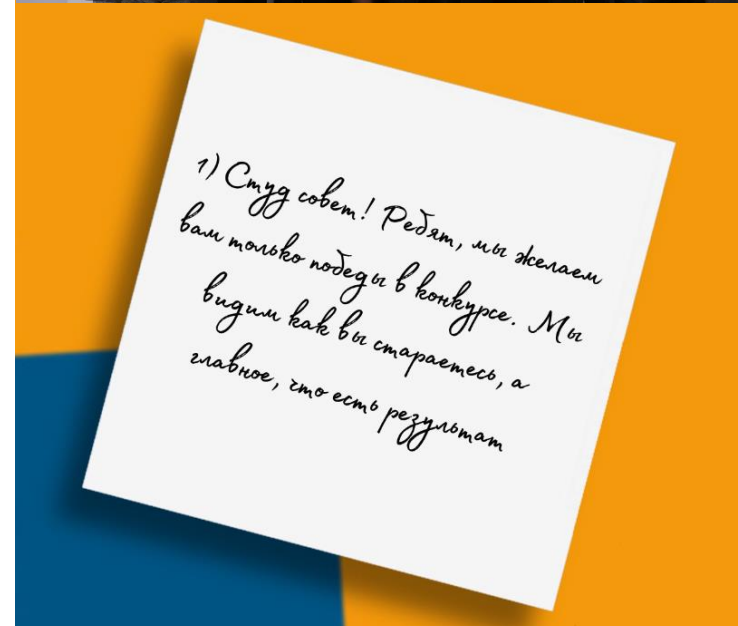 1) Студ совет! Ребят, мы желаем
вам только победы в конкурсе. Мы
видим как вы стараетесь, а
главное, что есть результат